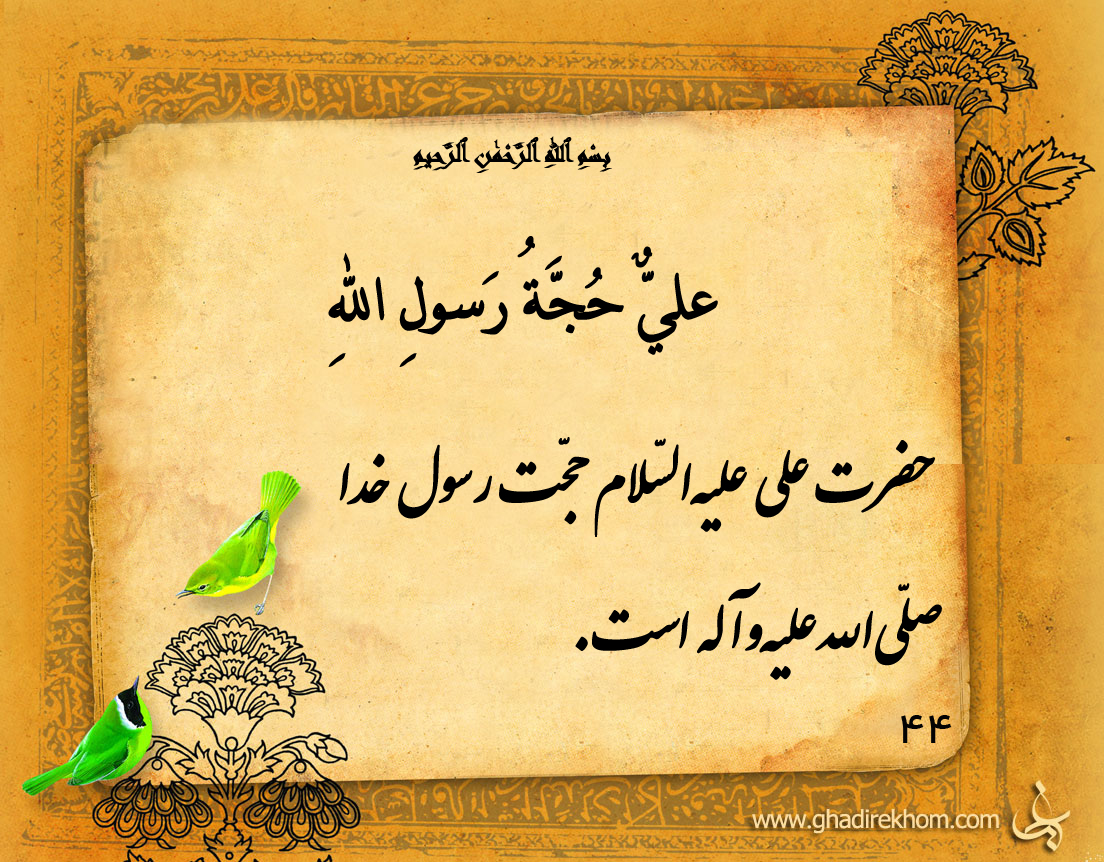 بِسْمِ ٱللَّهِ ٱلرَّحْمَٰنِ ٱلرَّحِيمِ
عليٌّ حُجَّةُ رَسولِ اللهِ
حضرت علی علیه‌السّلام حجّت رسول خدا
صلّی الله علیه و آله است.
۴۴
www.ghadirekhom.com